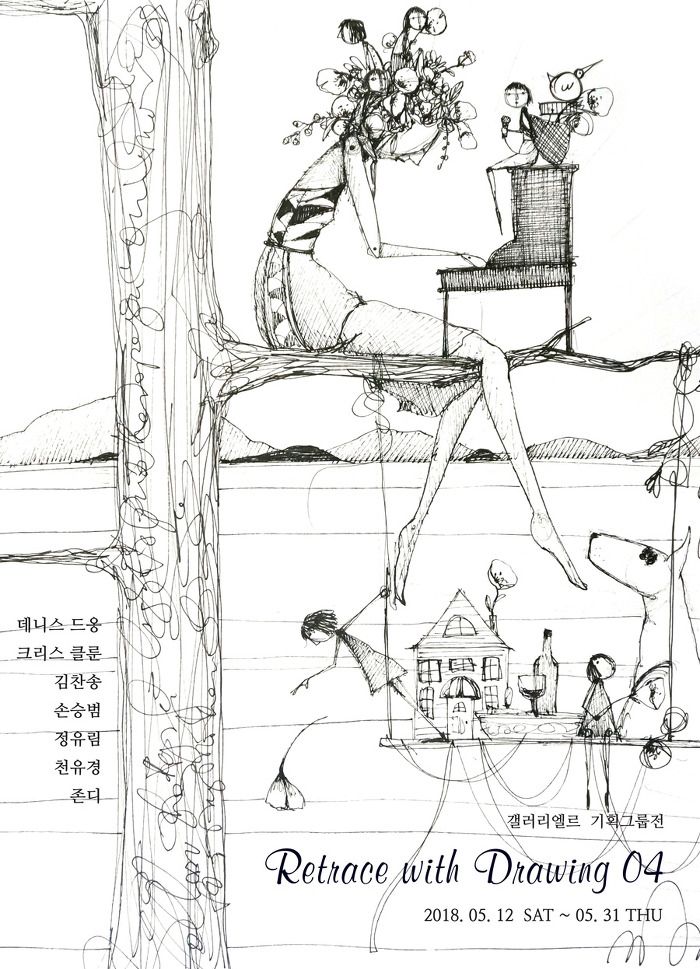 데니스 드옹
크리스 클룬
김찬송
손승범
정유림
천유경
존디
갤러리엘르 기획그룹전
Retrace with Drawing 04
2018. 05. 12 SAT ~ 05. 31 THU